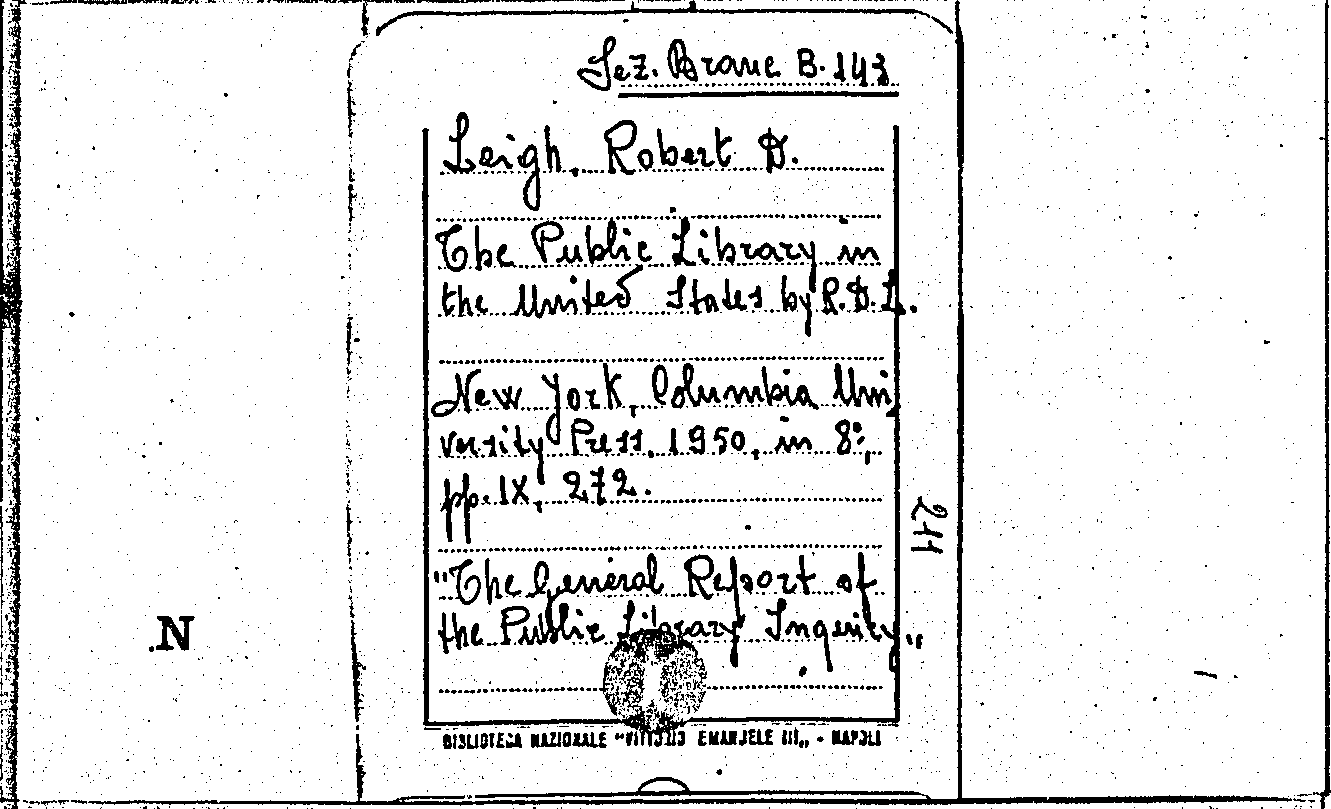 Sez. Branc B. 143
Leigh, Robert D.
The Public Library in
the United States by R.D.L.
New York, Columbia Uni
versity Press, 1950, in 8°,
pp. IX, 272.
"The General Report of
the Public Library Inquiry„
211
N
BIBLIOTECA NAZIONALE "VITTORIO EMANUELE III„ - NAPOLI